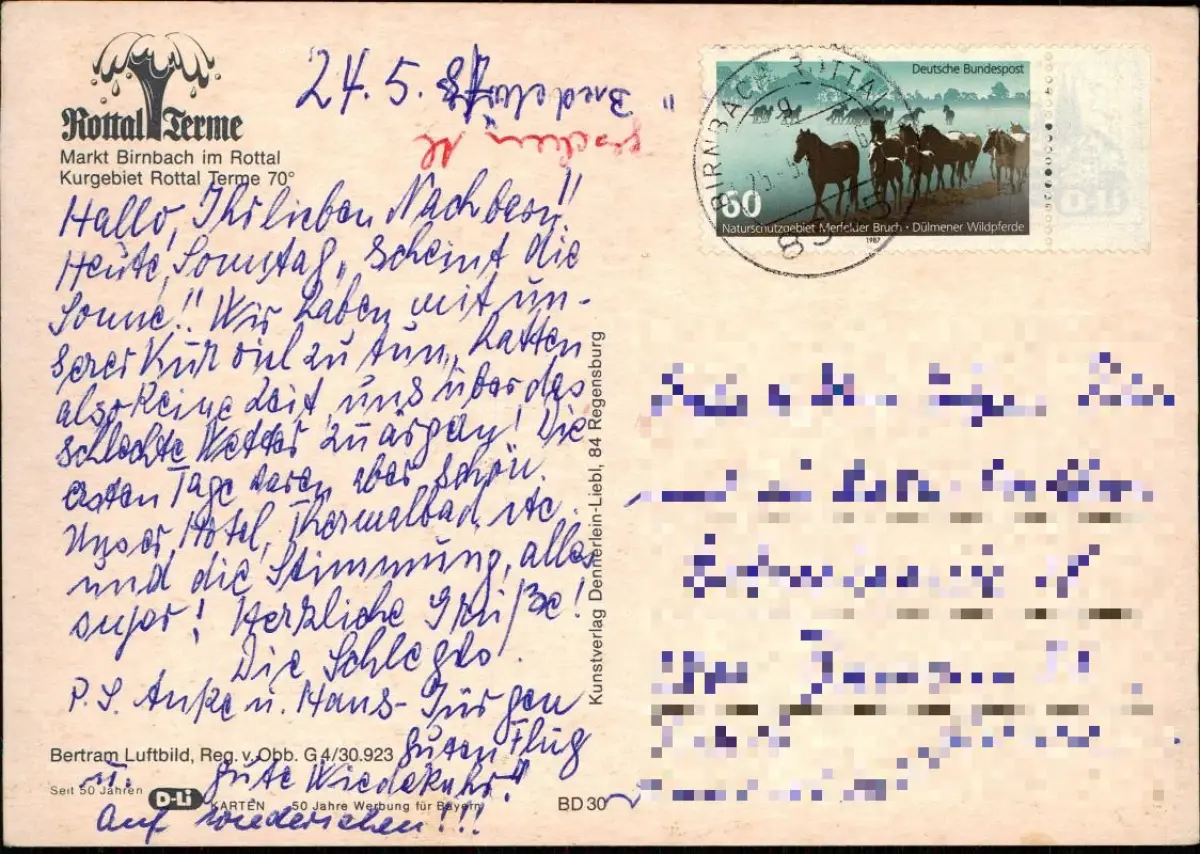 Rottal Terme
Markt Birnbach im Rottal
Kurgebiet Rottal Terme 70°
24.5.87
Hallo, Ihr lieben Nachbarn!!
Heute, Sonntag, scheint die
Sonne!! Wir haben mit un-
serer Kur viel zu tun, hatten
also keine Zeit, uns über das
schlechte Wetter zu ärgern! Die
ersten Tage waren aber schön.
Unser Hotel, Thermalbad, etc.
und die Stimmung, alles
super! Herzliche Grüße!
Die Schlegels.
P.S. Anke u. Hans-Jürgen
Bertram Luftbild, Reg. v. Obb. G 4/30.923
guten Flug
u. gute Wiederkehr!!
Seit 50 Jahren D-Li KARTEN 50 Jahre Werbung für Bayern
BD 30
Auf Wiedersehen!!!
Kunstverlag Dennerlein-Liebl, 84 Regensburg
Deutsche Bundespost
60
Naturschutzgebiet Merfelder Bruch · Dülmener Wildpferde
1987
BIRNBACH, ROTTAL
D-Li